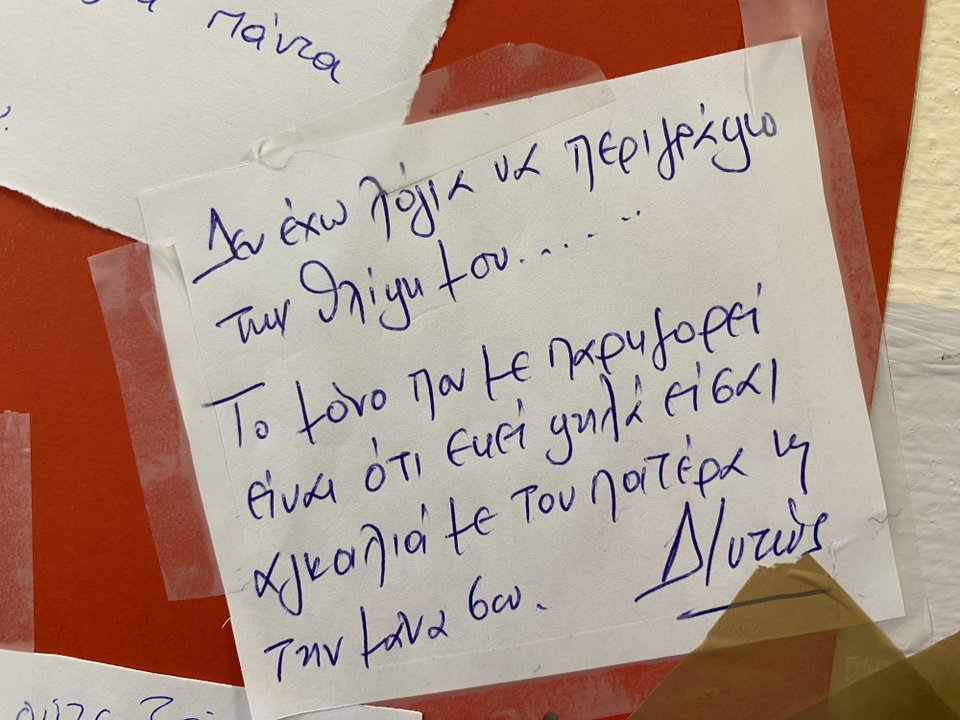 πάντα
Δεν έχω λόγια να περιγράψω
την θλίψη μου.......
Το μόνο που με παρηγορεί
είναι ότι εκεί ψηλά είσαι
αγκαλιά με τον πατέρα κ
την μάνα σου.
Δ/ντώς